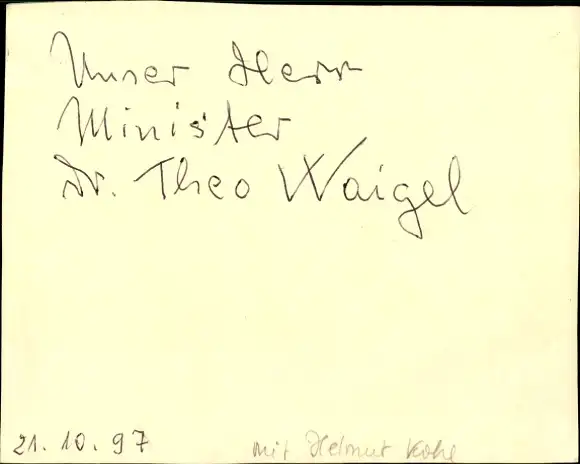 Unser Herr
Minister
Dr. Theo Waigel
21. 10. 97
mit Helmut Kohl